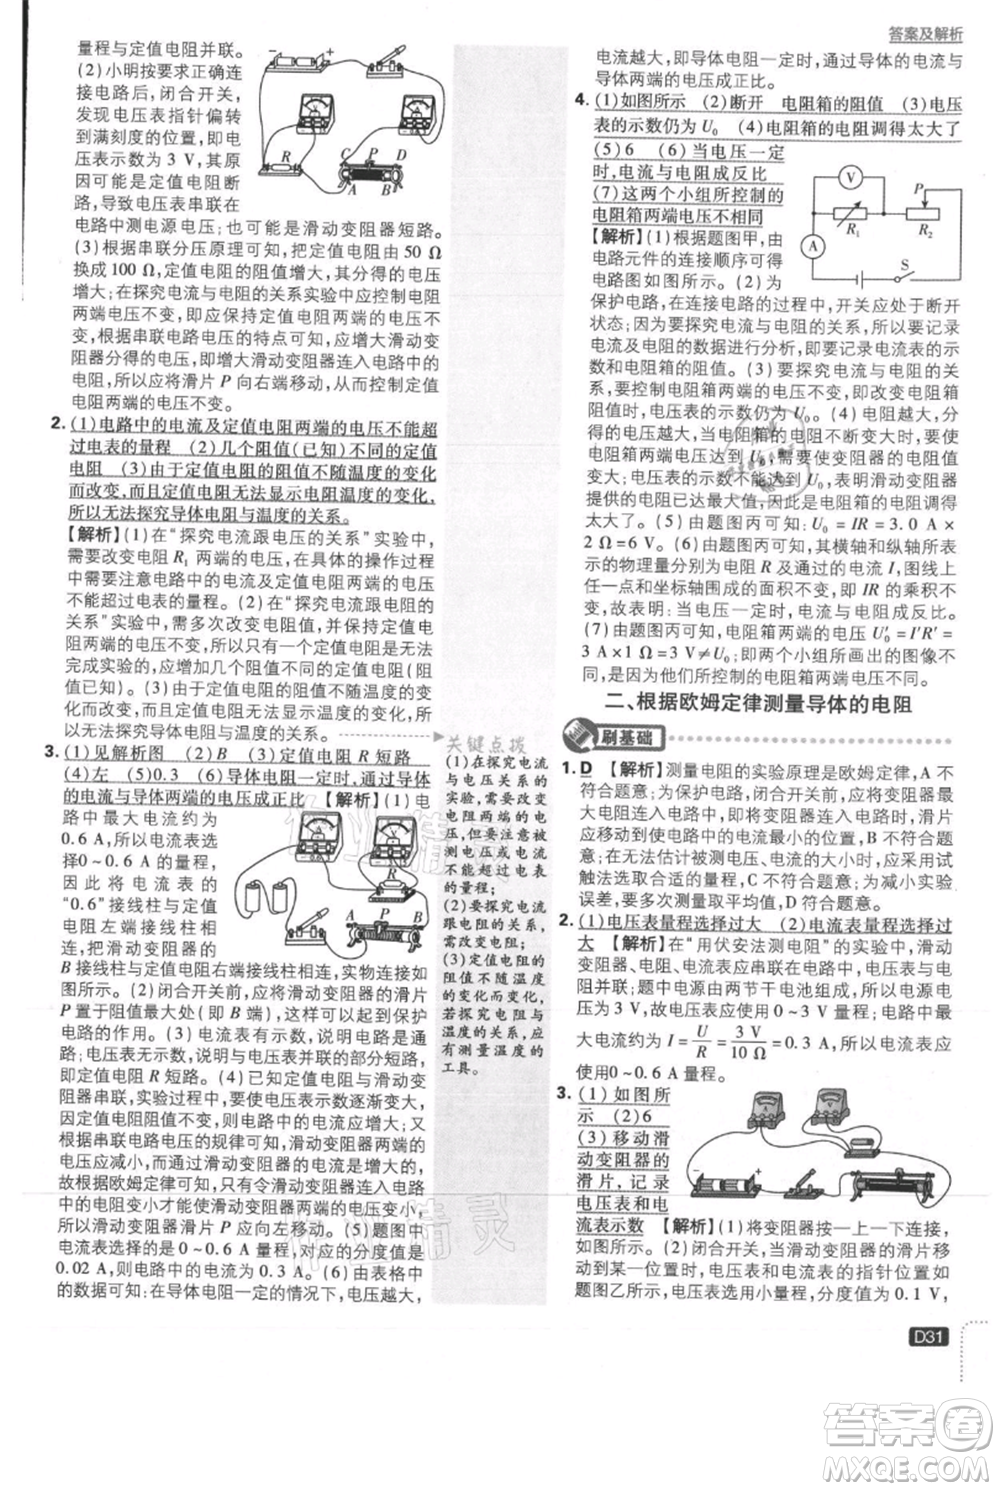 答案及解析
量程与定值电阻并联。
(2)小明按要求正确连
接电路后,闭合开关,
发现电压表指针偏转
到满刻度的位置,即电
压表示数为 3 V,其原
因可能是定值电阻断
路,导致电压表串联在
电路中测电源电压;也可能是滑动变阻器短路。
(3)根据串联分压原理可知,将定值电阻由 50 Ω
换成 100 Ω,定值电阻的阻值增大,其分得的电压
增大;在探究电流与电阻的关系实验中应控制电阻
两端电压不变,即应保持定值电阻两端的电压不
变,根据串联电路电压的特点可知,应增大滑动变
阻器分得的电压,即增大滑动变阻器连入电路中的
电阻,所以应将滑片 P 向右端移动,从而控制定值
电阻两端的电压不变。
2. (1)电路中的电流及定值电阻两端的电压不能超
过电表的量程 (2)几个阻值(已知)不同的定值
电阻 (3)由于定值电阻的阻值不随温度的变化
而改变,而且定值电阻无法显示电阻温度的变化,
所以无法探究导体电阻与温度的关系。
【解析】(1)在“探究电流跟电压的关系”实验中,
需要改变电阻 R₁ 两端的电压,在具体的操作过程
中需要注意电路中的电流及定值电阻两端的电压
不能超过电表的量程。(2)在“探究电流跟电阻的
关系”实验中,需多次改变电阻值,并保持定值电
阻两端的电压不变,所以还需要增加的器材是:为
完成实验,还需增加几个阻值不同的定值电阻(阻
值已知)。(3)定值电阻的阻值不随温度的变化
而改变,而且定值电阻无法显示温度的变化,所
以无法探究导体电阻与温度的关系。
3. (1)见解析图 (2)B (3)定值电阻 R 短路
(4)左 (5)0.3 (6)导体电阻一定时,通过导体
的电流与导体两端的电压成正比 【解析】(1)电
路中最大电流约为
0.6 A,故电流表选
择0～0.6 A 的量程,
因此将电流表的
“0.6”接线柱与定值
电阻左端接线柱相
连,把滑动变阻器的
B 接线柱与定值电阻右端接线柱相连,实物连接如
图所示。(2)闭合开关前,应将滑动变阻器的滑片
P 置于阻值最大处(即 B 端),这样可以起到保护
电路的作用。(3)电流表有示数,说明电路是通
路;电压表无示数,说明与电压表并联的部分短路,
即定值电阻 R 短路。(4)已知定值电阻与滑动变
阻器串联,且电压表示数逐渐变大,
定值电阻阻值不变,则电路中的电流变大。
根据串联电路电压的规律可知,滑动变阻器两端的
电压应减小,而通过滑动变阻器的电流是增大的,
故根据欧姆定律可知,只有令滑动变阻器连入电路
中的电阻变小才能使滑动变阻器两端的电压变小,
所以滑动变阻器滑片 P 应向左移动。(5)题图中
电流表选择的量程为 0～0.6 A,对应的分度值是
0.02 A,则电路中的电流为 0.3 A。(6)由表格中
的数据可知:在导体电阻一定的情况下,电压越大,
关键点拨
(1)在探究电流
与电压关系的
实验中,需要改变
电阻两端的电压,
量程;
(2)要探究电流
跟电阻的关系,
需要改变电阻;
(3)由于定值
电阻无法随温度
的变化而变化,
所以探究电阻与
温度的关系,应
有测量温度的
工具。
电流越大,即导体电阻一定时,通过导体的电流与
导体两端的电压成正比。
4. (1)如图所示 (2)断开 电阻箱的阻值 (3)电压
表的示数仍为 U₀ (4)电阻箱的电阻调得太大了
(5)6 (6)当电压一定
时,电流与电阻成反比
(7)这两个小组所控制的
电阻箱两端电压不相同
【解析】(1)根据题图甲,由
电路元件的连接可画出电
路图如图所示。(2)为
保护电路,在连接电路的过程中,开关应处于断开
状态;因为要探究电流与电阻的关系,所以要记录
电流与电阻的数据进行分析,即要记录电流表的示数
和电阻箱的阻值。(3)要探究电流与电阻的关
系,要控制电阻箱两端的电压不变,即改变电阻箱
的阻值,使电压表的示数仍为 U₀。(4)电阻越大,
分得的电压越大,当电阻箱的电阻过大时,会使得电压
表示数无法达到 U₀,这表明滑动变阻器所能
提供的电阻已是最大值,因此是电阻箱的电阻调得
太大了。(5)由题图丙可知:U₀=IR=3.0 A×
2 Ω=6 V。(6)由题图丙可知,其横轴和纵轴所示
的物理量分别为电阻 R 及通过的电流 I,图线上
任何一点和坐标轴围成的面积不变,即 IR 的乘积不
变,故表明:当电压一定时,电流与电阻成反比。
(7)由题图丙可知,电阻箱两端的电压 U₀′=I′R′=
3 A×1 Ω=3 V≠U₀;即两个小组所画出的图像不
同,这是因为他们所控制的电阻箱两端的电压不同。
V
P
R₁
R₂
A
S
二、根据欧姆定律测量导体的电阻
刷基础
1. D 【解析】测量电阻的实验原理是欧姆定律,A 不
符合题意;为保护电路,闭合开关前,应将滑动变阻
器连入电路的电阻调到最大,即闭合开关时,滑片
应移动到使电路中的电流最小的位置,B 不符合题
意;在无法估计被测电压、电流的大小时,应采用试
触法选取合适的量程,C 不符合题意;为减小实验
误差,要多次测量取平均值,D 符合题意。
2. (1)电压表量程选择过大 (2)电流表量程选择过
大 【解析】在“用伏安法测电阻”的实验中,滑动
变阻器、电阻、电流表应串联在电路中,电压表应并
联;题图中电源由两节干电池组成,所以电源电压
为 3 V,电压表应使用 0～3 V 量程;电路中最
大电流约为 I=U/R=3 V/10 Ω=0.3 A,所以电流表应
使用 0～0.6 A 量程。
3. (1)如图所
示 (2)6
(3)移动滑
动变阻器的
滑片,记录
电压表和电
流表示数 【解析】(1)将变阻器按一上一下连接,
如图所示。(2)闭合开关,当滑动变阻器的滑片移
动到某一位置时,电压表和电流表的指针位置如
题图乙所示,电压表选用小量程,分度值为 0.1 V,
D31
答案圈
MXQE.COM
作业精灵